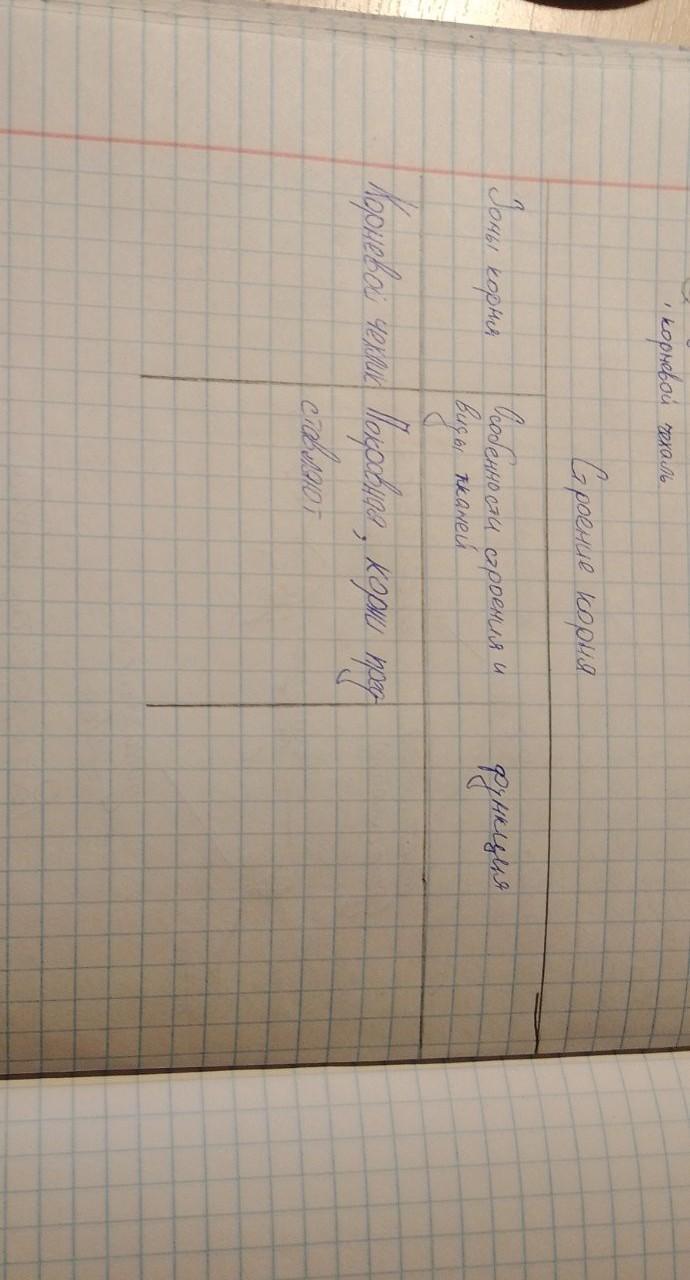 корневой чехаль
Строение корня
Зоны корня
Особенности строения и
виды тканей
функция
Корневой чехлик
Покровная, корни пред-
ставляют